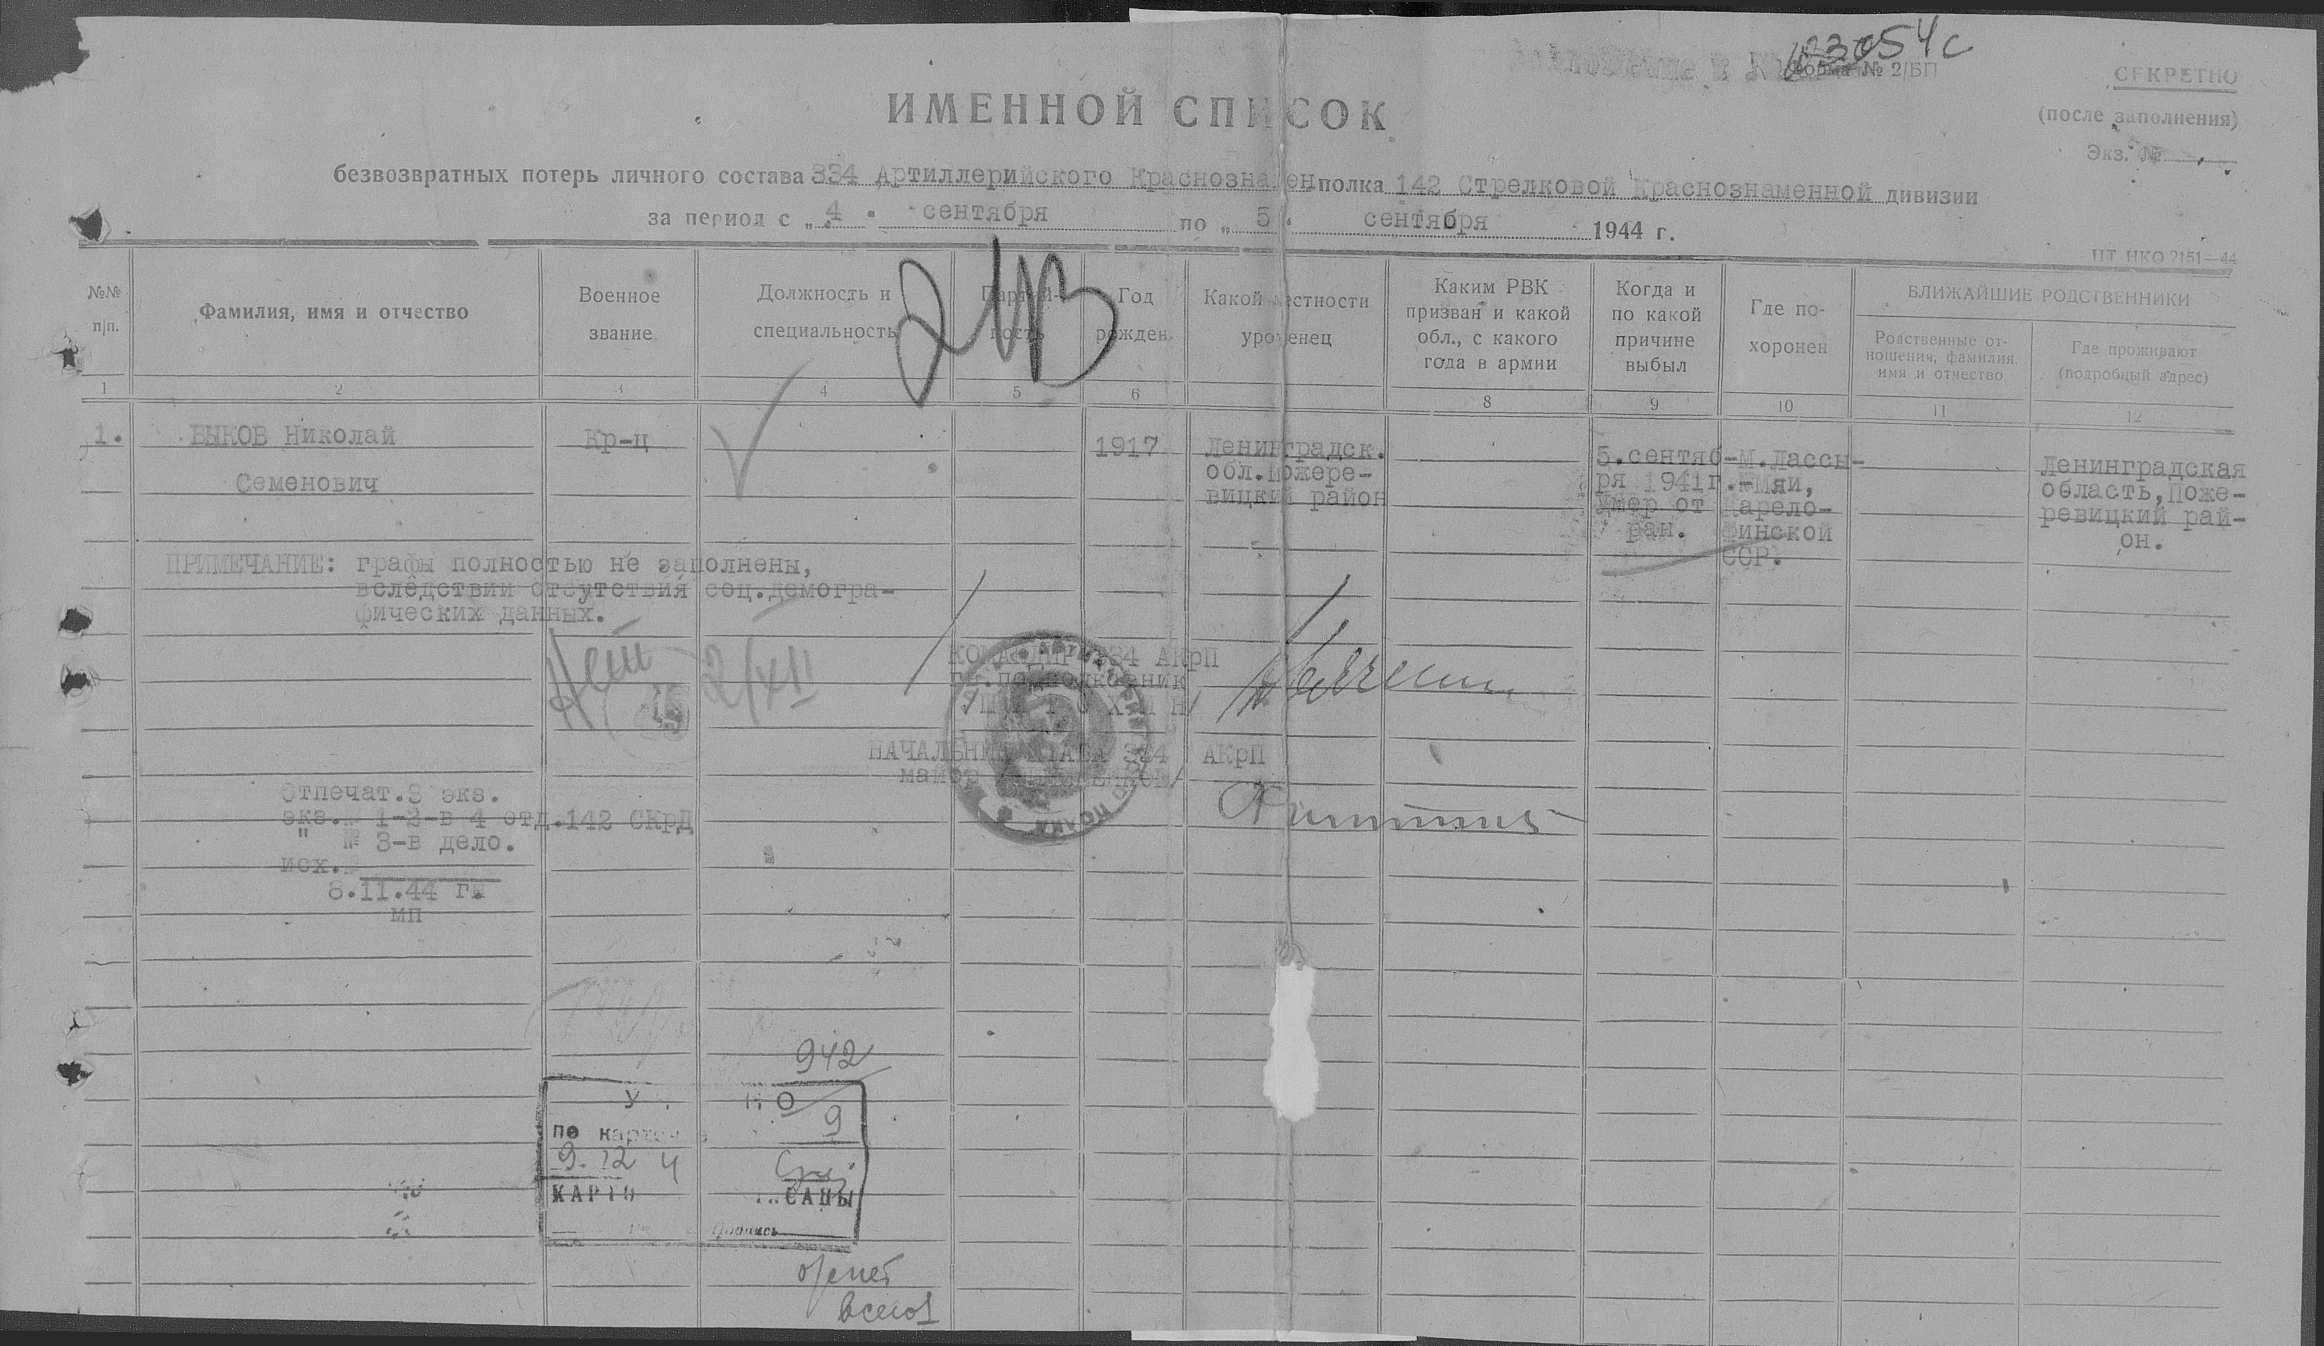 103054с
Форма № 2/БП
СЕКРЕТНО
(после заполнения)
Экз. №
ИМЕННОЙ СПИСОК
безвозвратных потерь личного состава 334 Артиллерийского Краснознамен полка 142 Стрелковой Краснознаменной дивизии
за период с „ 4 " сентября по „ 5 " сентября 1944 г.
ЦТ НКО 2151—44
№№ п/п.
Фамилия, имя и отчество
Военное звание
Должность и специальность
Партий-ность
Год рожден.
Какой местности уроженец
Каким РВК призван и какой обл., с какого года в армии
Когда и по какой причине выбыл
Где по-хоронен
БЛИЖАЙШИЕ РОДСТВЕННИКИ
Родственные от-ношения, фамилия, имя и отчество
Где проживают (подробный адрес)
1 2 3 4 5 6 8 9 10 11 12
1. БЫКОВ Николай Кр-ц 1917 Ленинградск. 5.сентяб- М.Лассы- Ленинградская
Семенович обл.Пожере- ря 1941г.- Мяи, область,Поже-
вицкий район Умер от Карело- ревицкий рай-
ран. Финской он.
ССР.
ПРИМЕЧАНИЕ: графы полностью не заполнены,
вследствии отсутствия соц.демогра-
фических данных.
Нет 2/XII
КОМАНДИР 334 АКрП
подполковник
НАЧАЛЬНИК ШТАБА 334 АКрП
майор
Отпечат.3 экз.
экз.№ 1-2-в 4 отд.142 СКрД
" № 3-в дело.
исх.№
8.11.44 г.
мп
942
9
по карточ
9. 12 4
КАРТО САНЫ
подпись
всего 1